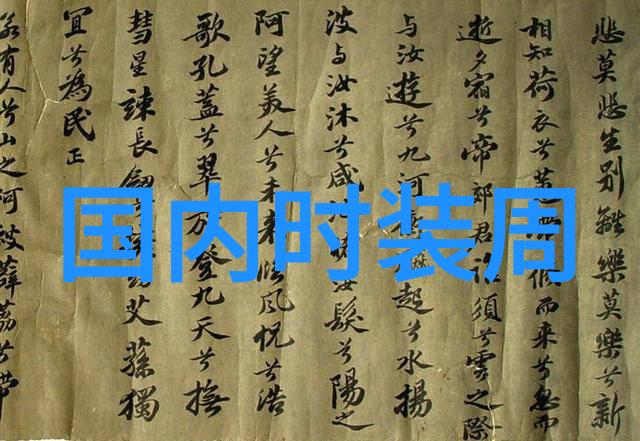 悲莫悲生别離樂莫樂兮新
相知荷衣兮蕙而來兮忽而
逝夕宿兮帝郊君須兮雲之際
与汝遊兮九河起兮水揚
波与汝沐兮咸池汝髮兮陽之
阿望美人兮未來臨風怳兮浩
歌孔蓋兮翠登九天兮撫
彗星竦長劍艾蓀獨
宜兮為民正
若有人兮山之阿被薜荔兮帶
国内时装周